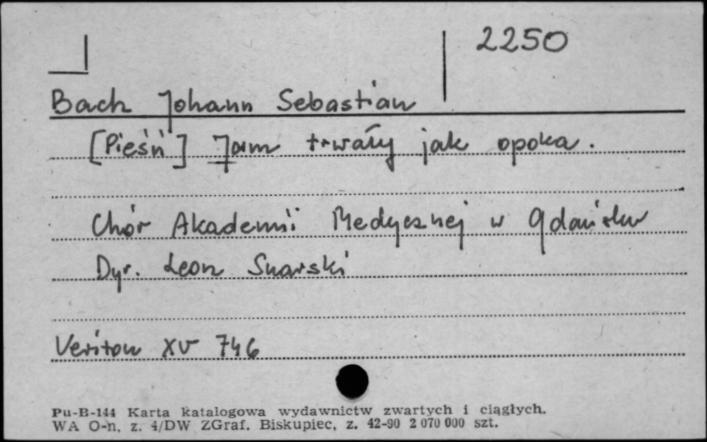 2250
Bach Johann Sebastian
[Pieśń] Jam trwały jak opoka.
Chór Akademii Medycznej w Gdańsku
Dyr. Leon Snarski
Veriton XV 746
Pu-B-144 Karta katalogowa wydawnictw zwartych i ciągłych.
WA O-n, z. 4/DW ZGraf. Biskupiec, z. 42-90 2 070 000 szt.